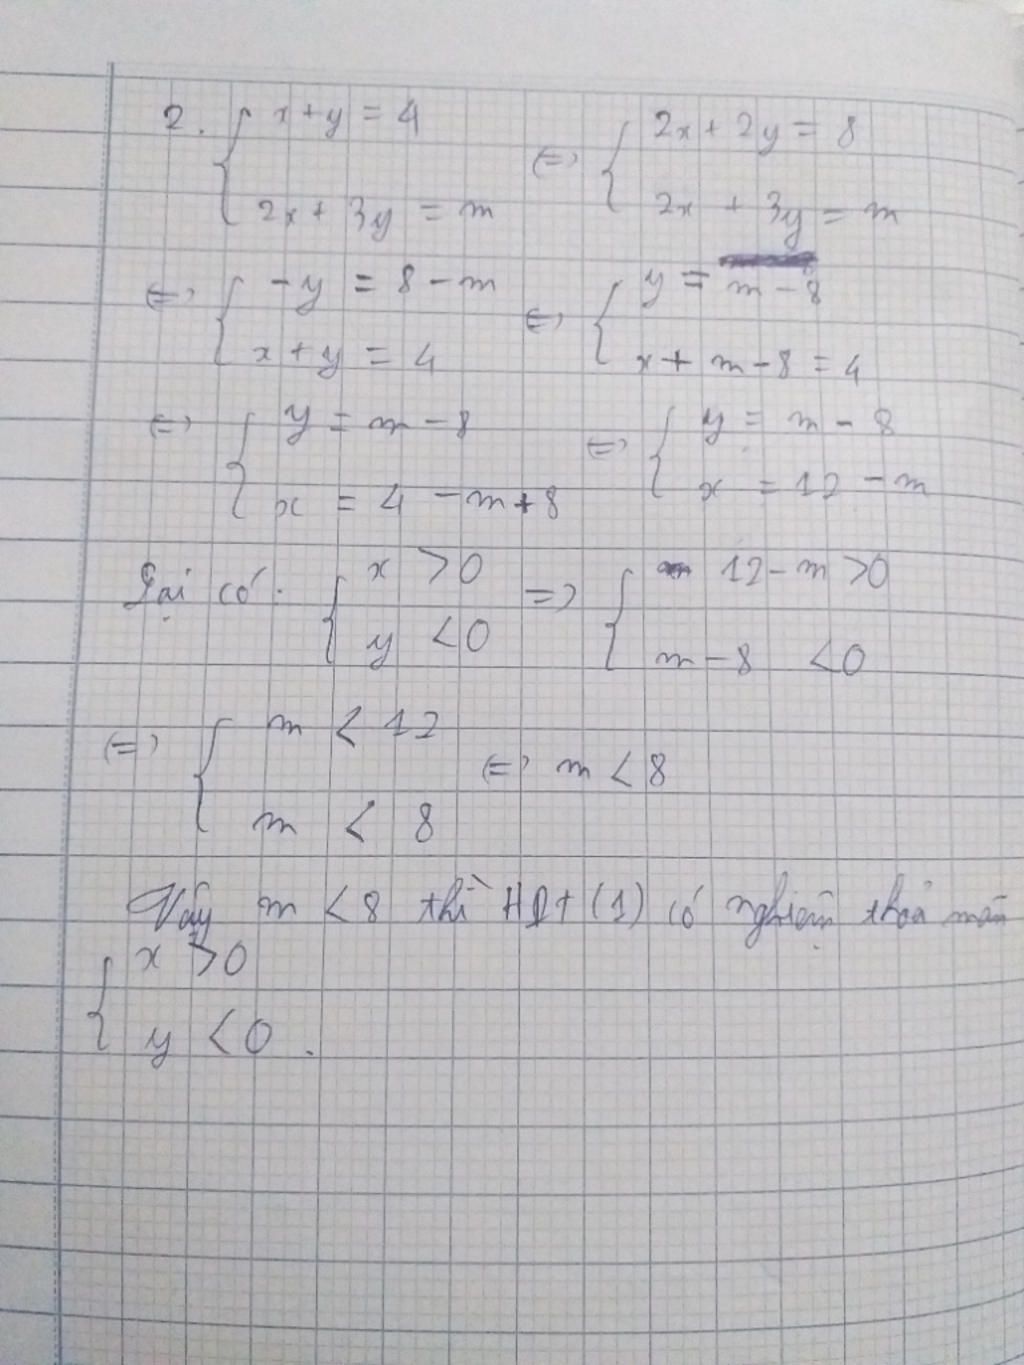 2. { x + y = 4 (=) { 2x + 2y = 8
2x + 3y = m 2x + 3y = m
(=) { - y = 8 - m (=) { y = m - 8
x + y = 4 x + m - 8 = 4
(=) { y = m - 8 (=) { y = m - 8
x = 4 - m + 8 x = 12 - m
Lại có: { x > 0 => { 12 - m > 0
y < 0 m - 8 < 0
(=) { m < 12 (=) m < 8
m < 8
Vậy m < 8 thì HPt (1) có nghiệm thỏa mãn
{ x > 0
y < 0 .